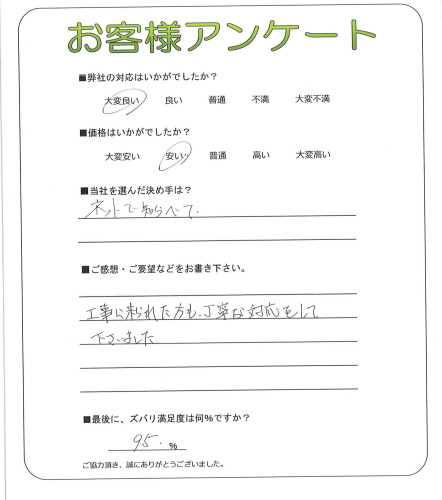 お客様アンケート
■弊社の対応はいかがでしたか？
大変良い 良い 普通 不満 大変不満
■価格はいかがでしたか？
大変安い 安い 普通 高い 大変高い
■当社を選んだ決め手は？
ネットで知らべて.
■ご感想・ご要望などをお書き下さい。
工事に来られた方も、丁寧な対応をして
下さいました
■最後に、ズバリ満足度は何％ですか？
95. ％
ご協力頂き、誠にありがとうございました。